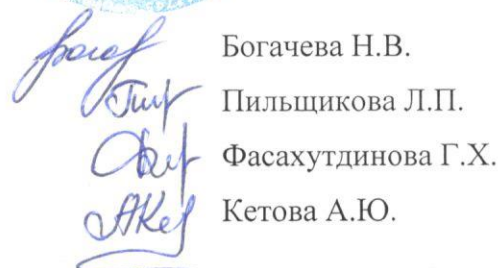 Богачева Н.В.
Пильщикова Л.П.
Фасахутдинова Г.Х.
Кетова А.Ю.